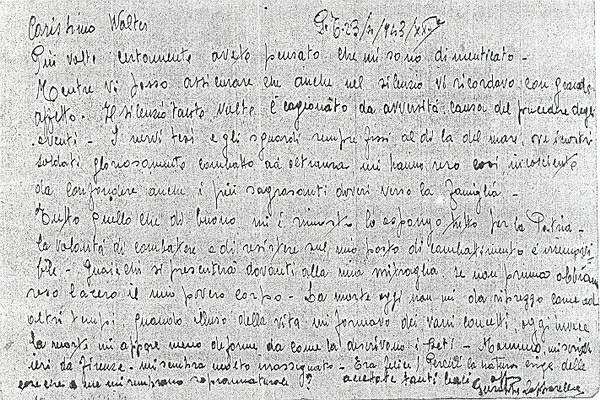 Carissimo Walter P.M. 23/2/943/XXI°
Più volte certamente avete pensato che mi sono dimenticato -
Mentre vi posso assicurare che anche nel silenzio vi ricordavo con grande
affetto. Il silenzio tante volte è cagionato da avversità causa del precedere degli
eventi - I nervi tesi e gli sguardi sempre fissi al di la del mare, ove i nostri
soldati gloriosamente combatto ad oltranza mi hanno reso così incosciente
da confondere anche i più sagrosanti doveri verso la famiglia -
Tutto quello che di buono mi è rimasto lo espongo tutto per la Patria -
la volontà di combattere e di resistere sul mio posto di combattimento è irremovi
bile - Guai chi si presenterà davanti alla mia mitraglia, se non prima abbiano
reso lacero il mio povero corpo - La morte oggi non mi da ribrezzo come ad
altri tempi, quando illuso della vita mi formavo dei vani concetti, oggi invece
la morte mi appare meno deforme da come la descrivono i poeti - Mammina, mi scrisse
ieri da Firenze - mi sembra molto rassegnata - Era felice! Perchè la natura erge delle
cose che a me mi sembrano soprannaturali? accettate tanti baci aff
Giuseppe